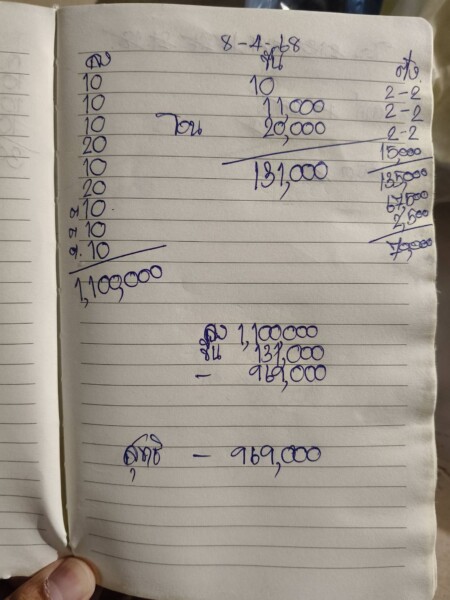 8-4-68
ลง ขึ้น
10 10 2-2
10 11,000 2-2
10 โอน 20,000 2-2
20 131,000 15,000
10 135,000
20 67,500
10 2,500
10 70,000
10
1,100,000
ลง 1,100,000
ขึ้น 131,000
- 969,000
สุทธิ - 969,000